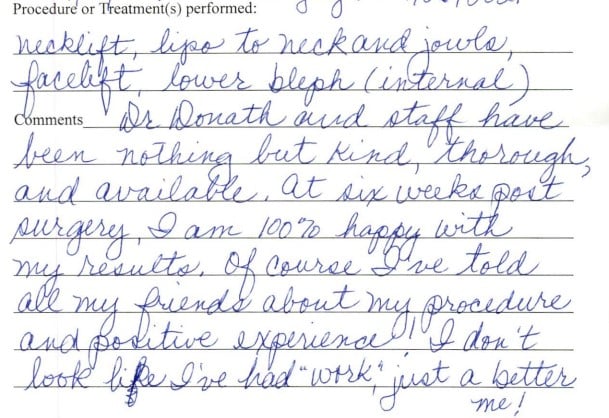 Procedure or Treatment(s) performed:
necklift, lipo to neck and jowls,
facelift, lower bleph (internal)
Comments Dr Donath and staff have
been nothing but kind, thorough,
and available. At six weeks post
surgery, I am 100% happy with
my results. Of course I've told
all my friends about my procedure
and positive experience! I don't
look like I've had "work", just a better
me!